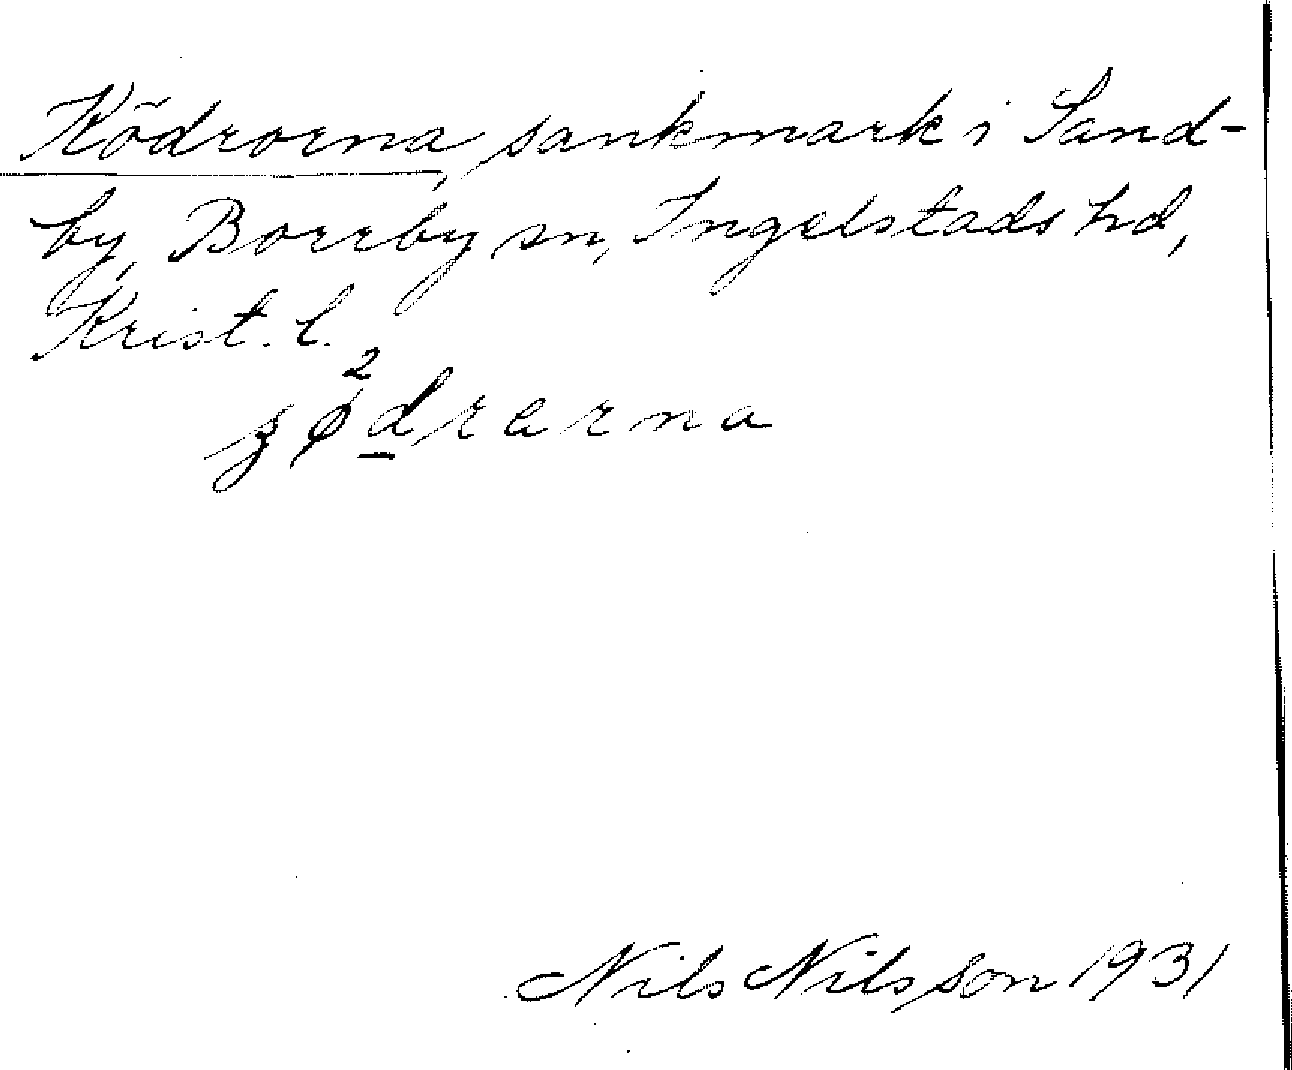 Ködrorna, sankmark i Sand-
by, Borrby sn, Ingelstads hd,
Krist. l.
ʒø²drarna
Nils Nilsson 1931